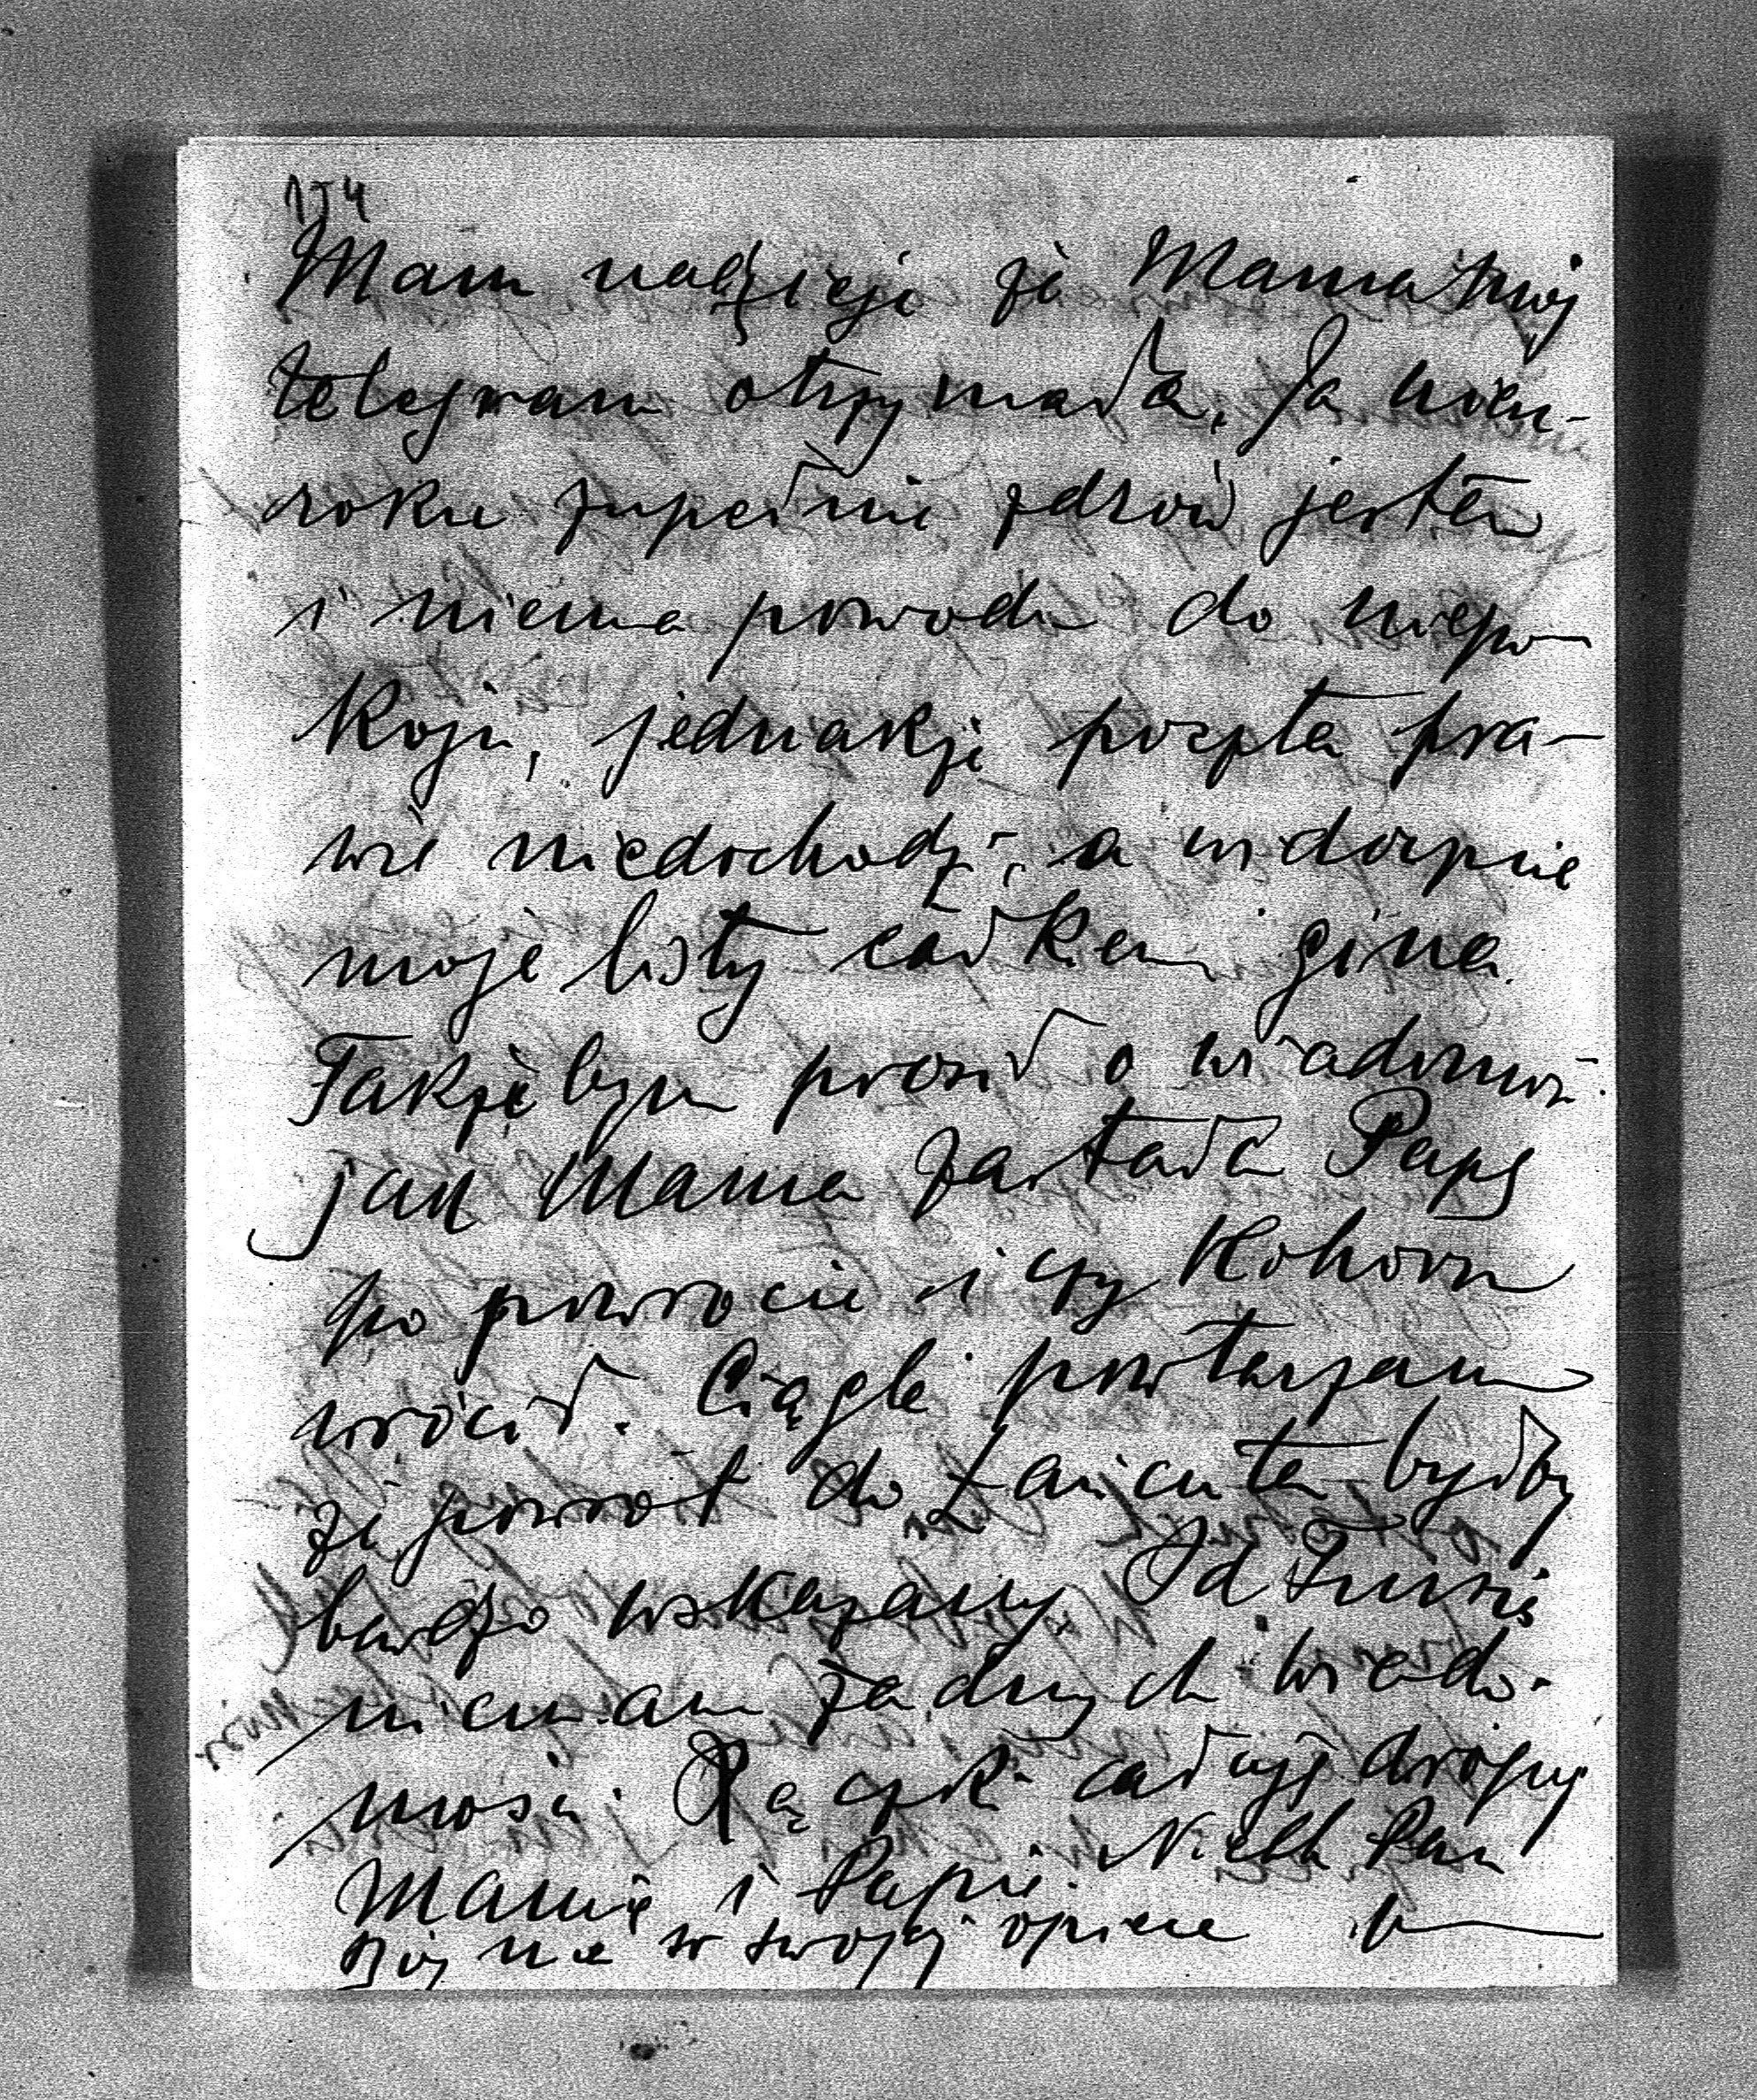 154
Mam nadzieję że Mama mój
telegram otrzymała. Ja
roku zupełnie zdrów jestem
i niema powodu do niepo-
koju, jednakże poczta pra-
wie niedochodzi, a widocznie
moje listy całkiem giną
Także bym prosił o wiadomość
jak Mama zastała Papę
po powrocie i czy
wrócił. Ciągle powtarzam
że powrót do Łańcuta byłby
bardzo wskazany Od
niemam żadnych wiado-
mości. Rączki całuję drogiej
Mamie i Papie. Niech Pan
Bóg ma w swojej opiece